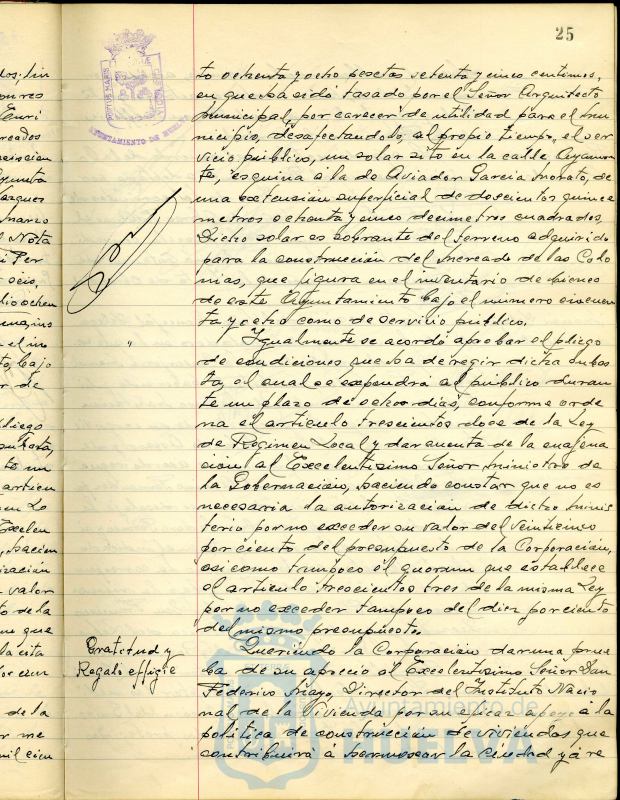 25
to ochenta y ocho pesetas setenta y cinco centimos,
en que ha sido tasado por el Señor Arquitecto
municipal, por carecer de utilidad para el Mu
nicipio, desafectandolo, al propio tiempo, el ser
vicio público, un solar sito en la calle Ayamon
te, esquina a la de Aviador Garcia Morato, de
una extension superficial de doscientos quince
metros ochenta y cinco decimetros cuadrados.
Dicho solar es sobrante del terreno adquirido
para la construcción del Mercado de las Colo
nias, que figura en el inventario de bienes
de este Ayuntamiento bajo el número cincuen
ta y ocho como de servicio público.
Igualmente se acordó aprobar el pliego
de condiciones que ha de regir dicha subas
ta, el cual se expondrá al público duran
te un plazo de ocho dias, conforme orde
na el articulo trescientos doce de la Ley
de Regimen Local y dar cuenta de la enajena
ción al Excelentisimo Señor Ministro de
la Gobernación, haciendo constar que no es
necesaria la autorización de dicho Minis
terio por no exceder su valor del veinticinco
por ciento del presupuesto de la Corporación,
asi como tampoco el quorum que establece
el articulo trescientos tres de la misma Ley
por no exceder tampoco del diez por ciento
del mismo presupuesto.
Gratitud y
Regalo effigie
Queriendo la Corporación dar una prue
ba de su aprecio al Excelentisimo Señor Don
Federico Mayo, Director del Instituto Nacio
nal de la Vivienda por su eficaz apoyo a la
politica de construcción de viviendas que
contribuirá a hermosear la Ciudad y a re
AYUNTAMIENTO DE HUELVA
Ayuntamiento de
HUELVA